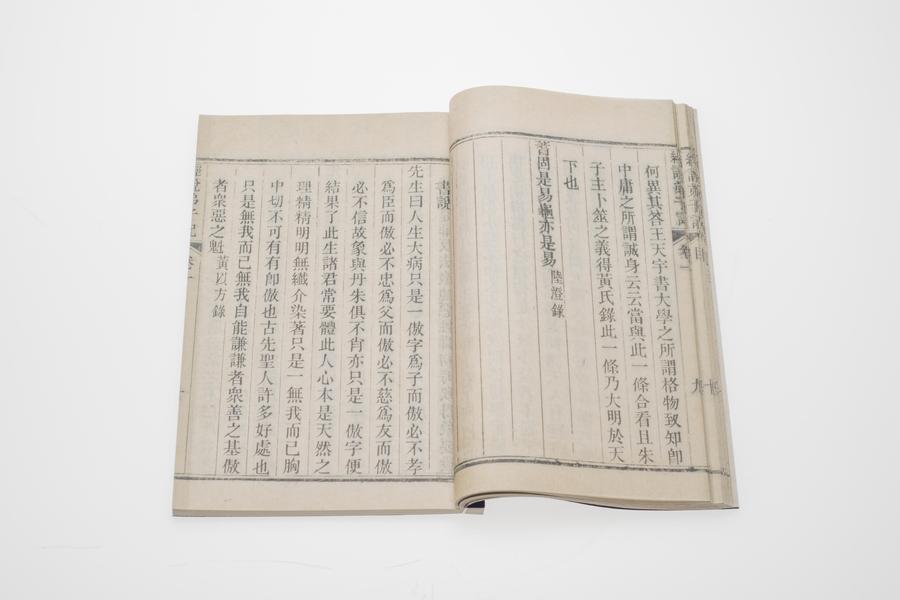 何異其答王天宇書大學之所謂格物致知卽
中庸之所謂誠身云云當與此一條合看且朱
子主卜筮之義得黃氏錄此一條乃大明於天
下也
蓍固是易龜亦是易 陸澄錄
書說
先生曰人生大病只是一傲字爲子而傲必不孝
爲臣而傲必不忠爲父而傲必不慈爲友而傲
必不信故象與丹朱俱不肖亦只是一傲字便
結果了此生諸君常要體此人心本是天然之
理精精明明無纖介染著只是一無我而已胸
中切不可有有卽傲也古先聖人許多好處也
只是無我而已無我自能謙謙者衆善之基傲
者衆惡之魁 黃以方錄
卷一